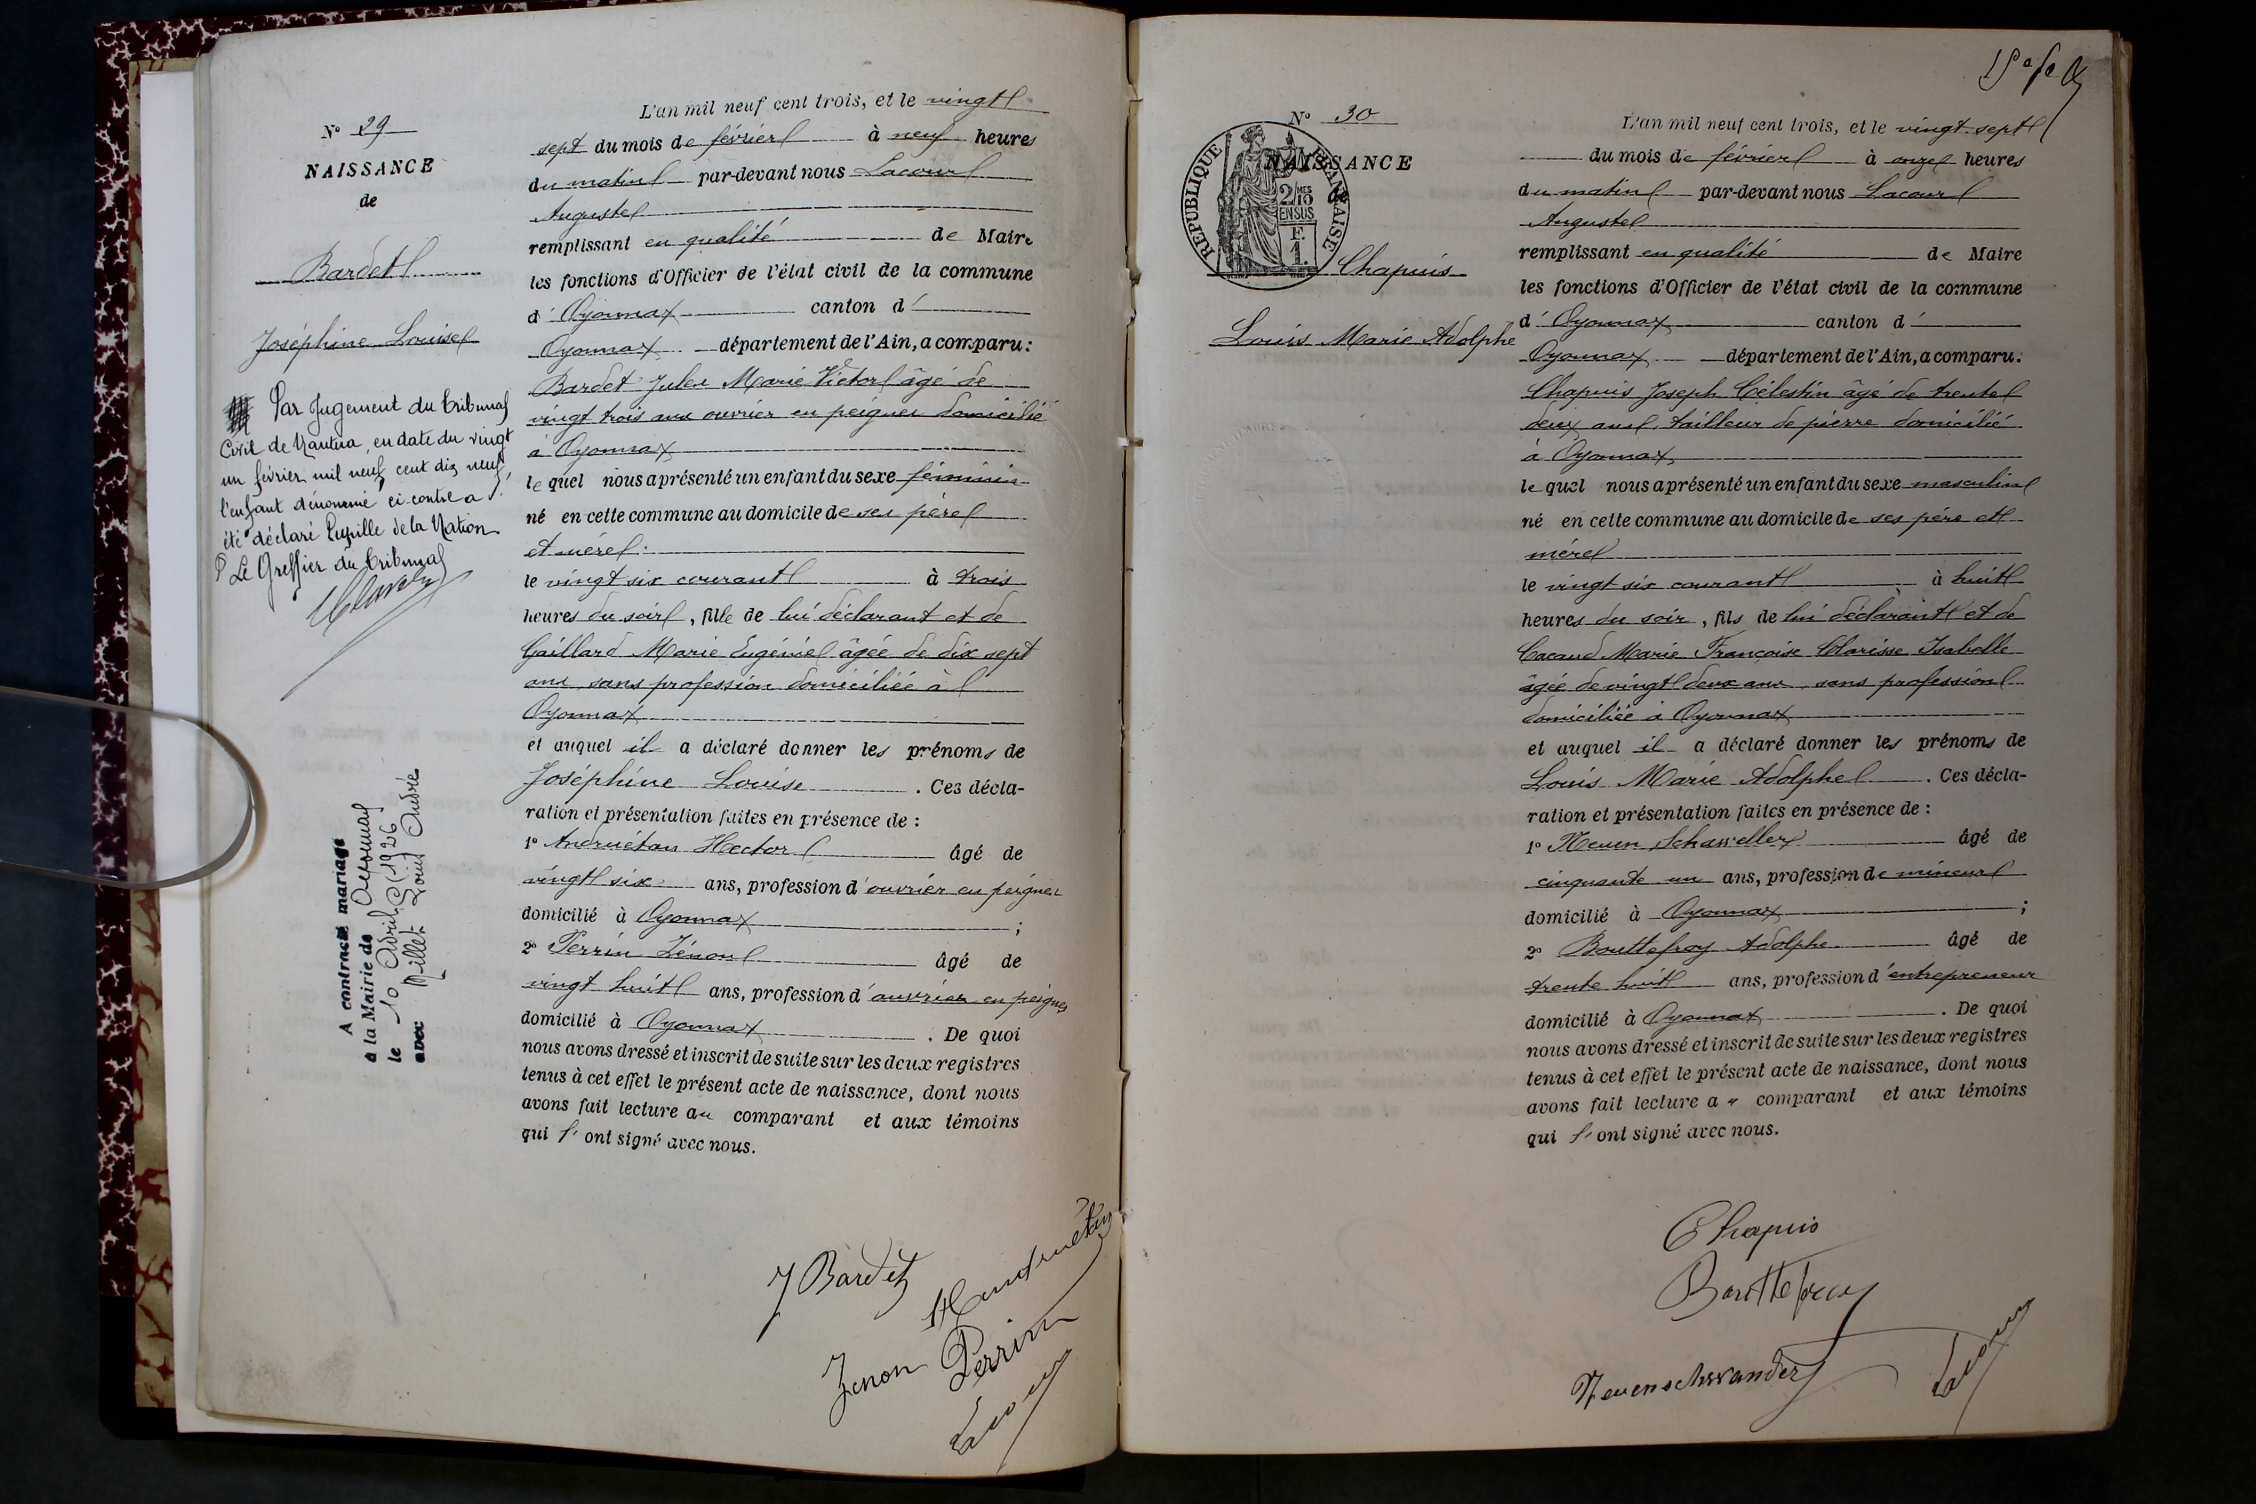 N° 29
NAISSANCE
de
Bardet
Joséphine Louise
Par Jugement du tribunal
Civil de Nantua, en date du vingt
un février mil neuf cent dix neuf,
l'enfant dénommé ci-contre a
été déclaré Pupille de la Nation
Le Greffier du tribunal
A contracté mariage
à la Mairie de Oyonnax
le 10 Avril (1926)
avec Millet Louis André
L'an mil neuf cent trois, et le vingt
sept du mois de février à neuf heures
du matin par-devant nous Lacour
Auguste
remplissant en qualité de Maire
les fonctions d'Officier de l'état civil de la commune
d' Oyonnax canton d'
Oyonnax département de l'Ain, a comparu :
Bardet Jules Marie Victor âgé de
vingt trois ans ouvrier en peignes domicilié
à Oyonnax
lequel nous a présenté un enfant du sexe féminin
né en cette commune au domicile de ses père
et mère
le vingt six courant à trois
heures du soir, fille de lui déclarant et de
Gaillard Marie Eugénie âgée de dix sept
ans, sans profession domiciliée à
Oyonnax
et auquel il a déclaré donner les prénoms de
Joséphine Louise . Ces décla-
ration et présentation faites en présence de :
1° Andruétan Hector âgé de
vingt six ans, profession d'ouvrier en peignes
domicilié à Oyonnax ;
2° Perrin Zénon âgé de
vingt huit ans, profession d'ouvrier en peignes
domicilié à Oyonnax . De quoi
nous avons dressé et inscrit de suite sur les deux registres
tenus à cet effet le présent acte de naissance, dont nous
avons fait lecture au comparant et aux témoins
qui l'ont signé avec nous.
J Bardet
H Andruétan
Zenon Perrin
Lacour
N° 30
NAISSANCE
de
RÉPUBLIQUE FRANÇAISE
2/10MES
EN SUS
F.
1.
Chapuis
Louis Marie Adolphe
L'an mil neuf cent trois, et le vingt-sept
du mois de février à onze heures
du matin par-devant nous Lacour
Auguste
remplissant en qualité de Maire
les fonctions d'Officier de l'état civil de la commune
d' Oyonnax canton d'
Oyonnax département de l'Ain, a comparu :
Chapuis Joseph Célestin âgé de trente
deux ans, tailleur de pierre domicilié
à Oyonnax
lequel nous a présenté un enfant du sexe masculin
né en cette commune au domicile de ses père et
mère
le vingt six courant à huit
heures du soir, fils de lui déclarant et de
Cacaud Marie Françoise Clarisse Isabelle
âgée de vingt deux ans, sans profession
domiciliée à Oyonnax
et auquel il a déclaré donner les prénoms de
Louis Marie Adolphe . Ces décla-
ration et présentation faites en présence de :
1° âgé de
cinquante un ans, profession de mineur
domicilié à Oyonnax ;
2° Bouttefroy Adolphe âgé de
trente huit ans, profession d'entrepreneur
domicilié à Oyonnax . De quoi
nous avons dressé et inscrit de suite sur les deux registres
tenus à cet effet le présent acte de naissance, dont nous
avons fait lecture au comparant et aux témoins
qui l'ont signé avec nous.
Chapuis
Bouttefroy
Neuenschwander
Lacour